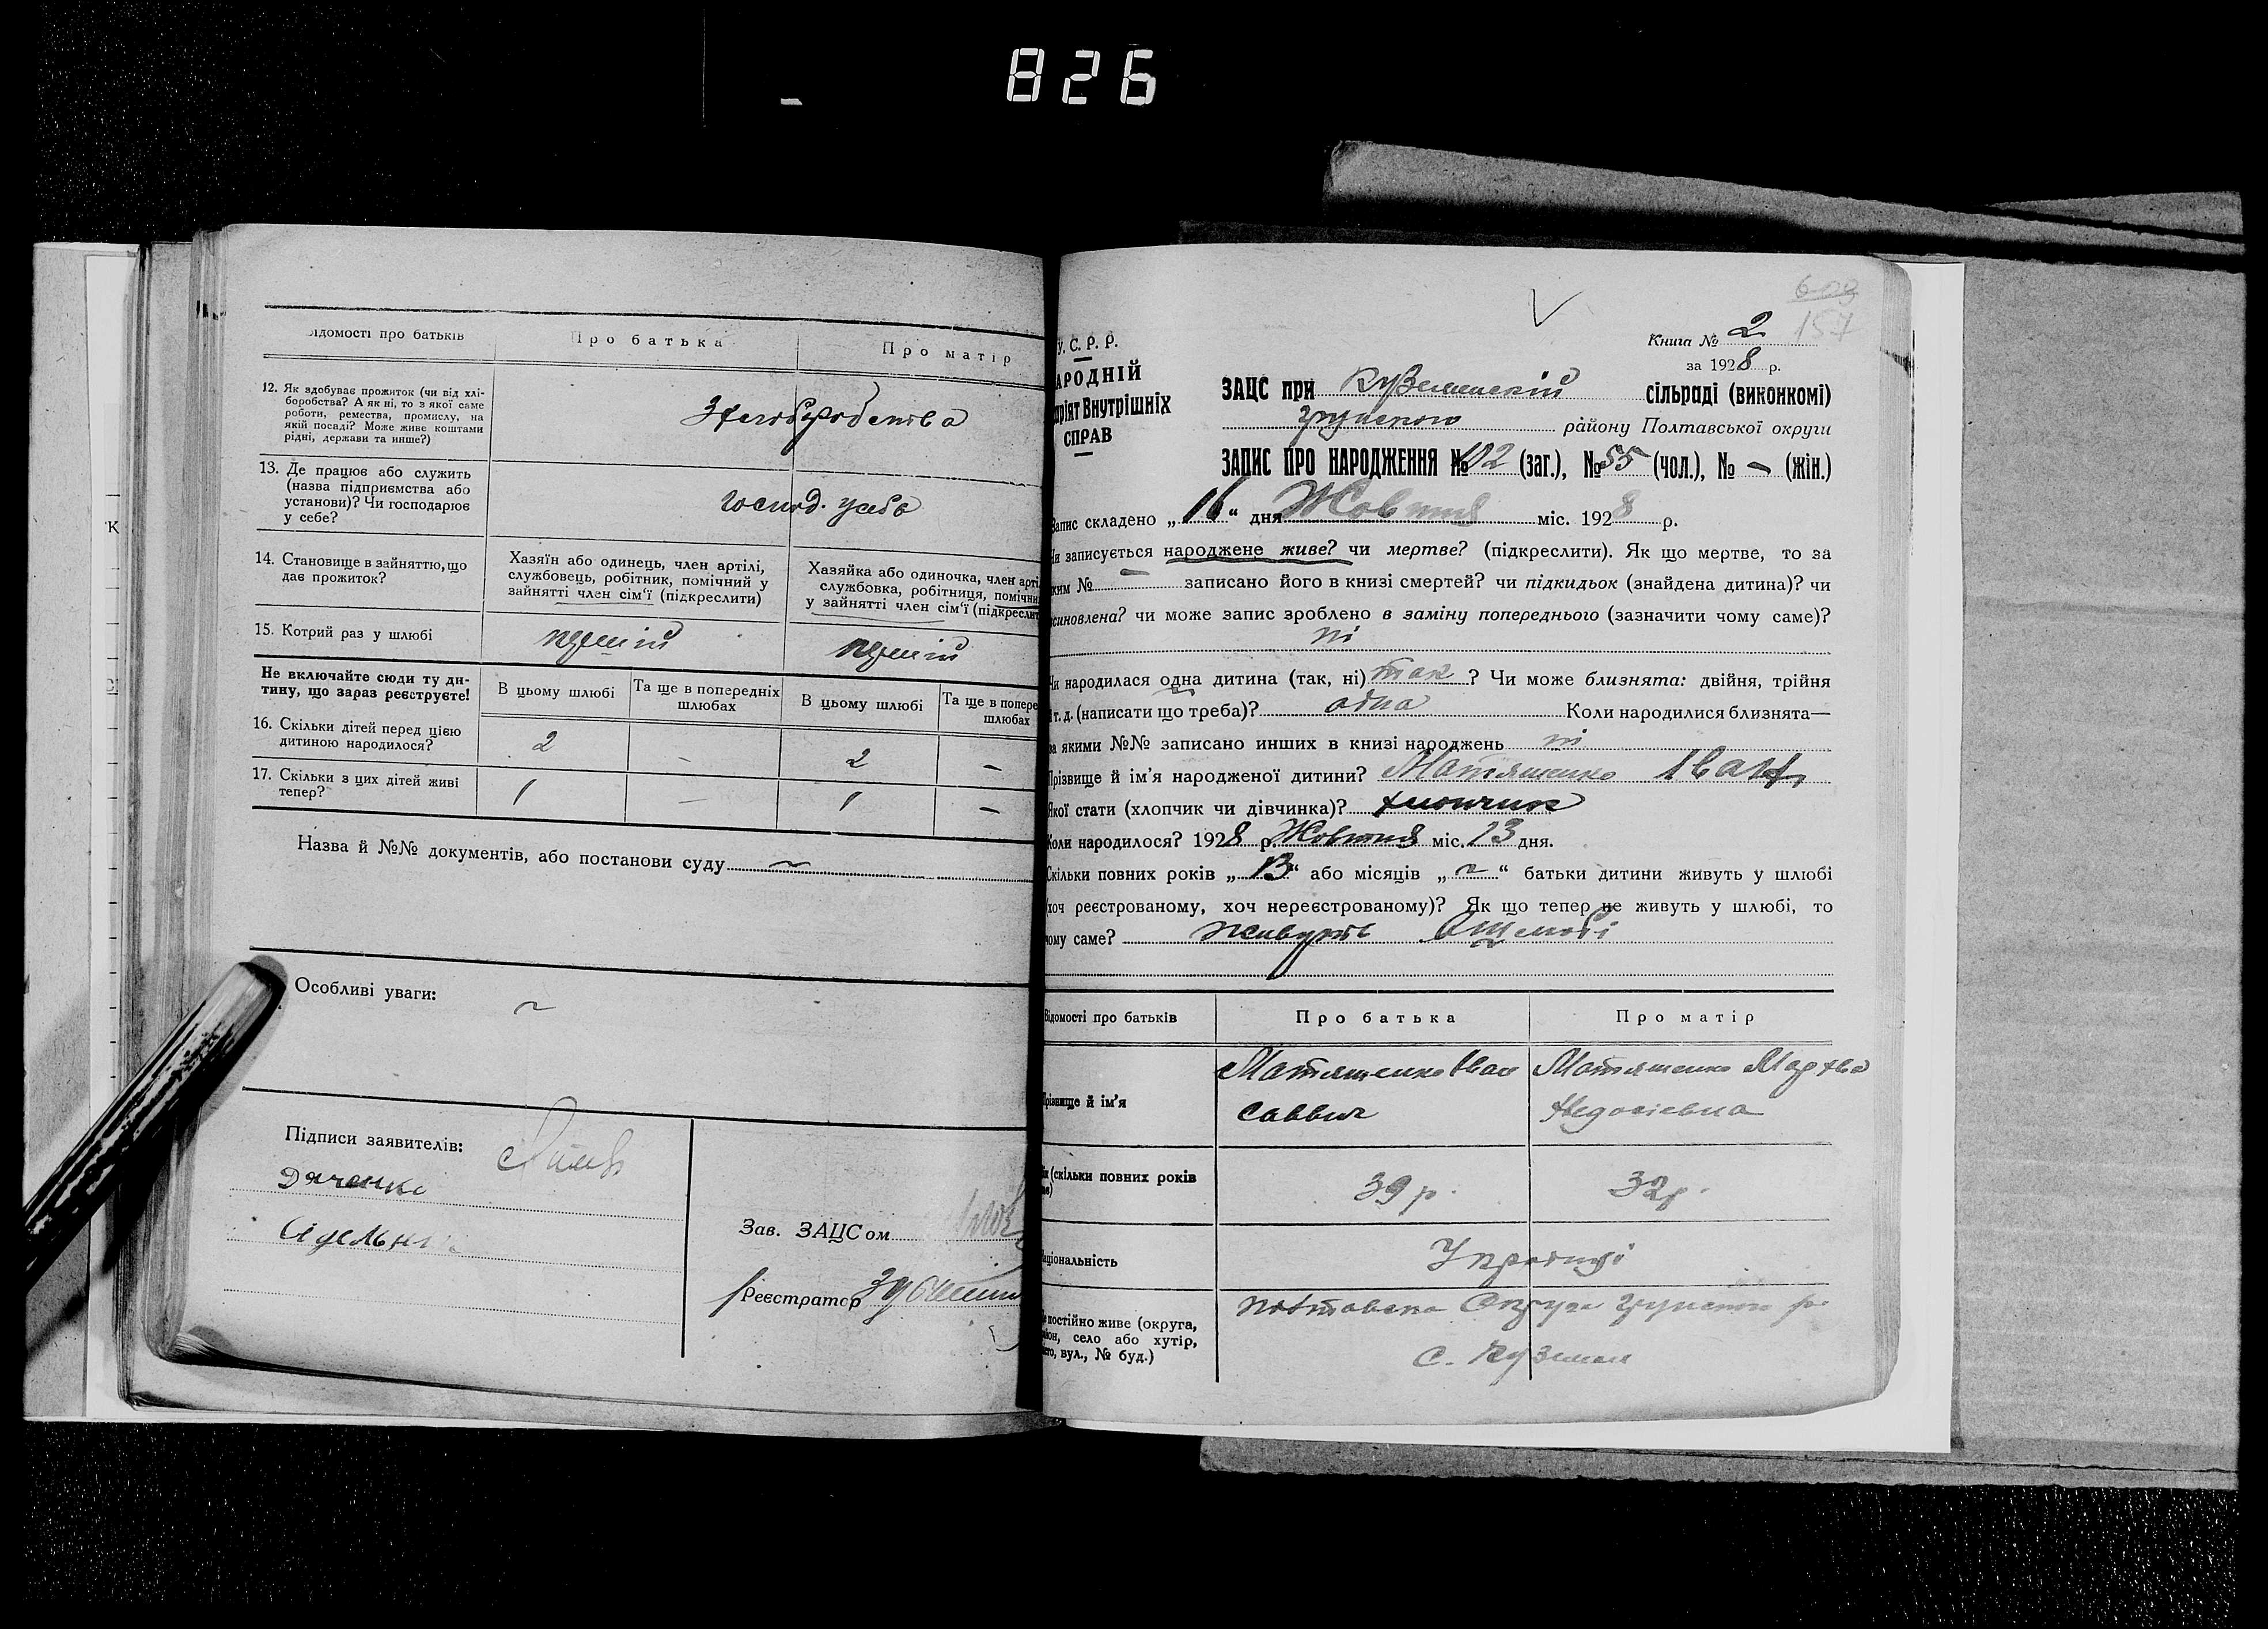 826
ідомості про батьків
Про батька
Про матір
12. Як здобуває прожиток (чи від хлі-
боробства? А як ні, то з якої саме
роботи, ремества, промислу, на
якій посаді? Може живе коштами
рідні, держави та инше?)
З хліборобства
13. Де працює або служить
(назва підприємства або
установи)? Чи господарює
у себе?
господ. у себе
14. Становище в зайняттю, що
дає прожиток?
Хазяїн або одинець, член артілі,
службовець, робітник, помічний у
зайнятті член сім'ї (підкреслити)
Хазяйка або одиночка, член арті
службовка, робітниця, помічни
у зайнятті член сім'ї (підкреслит
15. Котрий раз у шлюбі
перший
перший
Не включайте сюди ту ди-
тину, що зараз реєструєте!
В цьому шлюбі
Та ще в попередніх
шлюбах
В цьому шлюбі
Та ще в попере
шлюбах
16. Скільки дітей перед цією
дитиною народилося?
2 - 2 -
17. Скільки з цих дітей живі
тепер?
1 - 1 -
Назва й №№ документів, або постанови суду ~
Особливі уваги:
~
Підписи заявителів:
Дяченко
Зав. ЗАЦСом
Реєстратор
609
157
У. С. Р. Р.
АРОДНІЙ
ріят Внутрішніх
СПРАВ
Книга № 2
за 1928 р.
ЗАЦС при Куземенскій сільраді (виконкомі)
грунского району Полтавської округи
ЗАПИС ПРО НАРОДЖЕННЯ № 102 (заг.), № 55 (чол.), № - (жін.)
Запис складено „16“ дня Жовтня міс. 1928 р.
Чи записується народжене живе? чи мертве? (підкреслити). Як що мертве, то за
ким № - записано його в книзі смертей? чи підкидьок (знайдена дитина)? чи
синовлена? чи може запис зроблено в заміну попереднього (зазначити чому саме)?
ні
Чи народилася одна дитина (так, ні) так? Чи може близнята: двійня, трійня
і т. д. (написати що треба)? одна Коли народилися близнята—
за якими №№ записано инших в книзі народжень ні
Прізвище й ім'я народженої дитини? Матяшенко Іван
Якої стати (хлопчик чи дівчинка)? хлопчик
Коли народилося? 1928 р. Жовтня міс. 13 дня.
Скільки повних років „13“ або місяців „~“ батьки дитини живуть у шлюбі
(хоч реєстрованому, хоч нереєстрованому)? Як що тепер не живуть у шлюбі, то
чому саме? живуть в шлюбі
Відомості про батьків
Про батька
Про матір
Прізвище й ім'я
Матяшенко Іван
Саввич
Матяшенко Марфа
Федосіевна
(скільки повних років
39 р.
32 р.
ціональність
Українці
е постійно живе (округа,
йон, село або хутір,
сто, вул., № буд.)
Полтавска Округа грунского р
с. Куземен